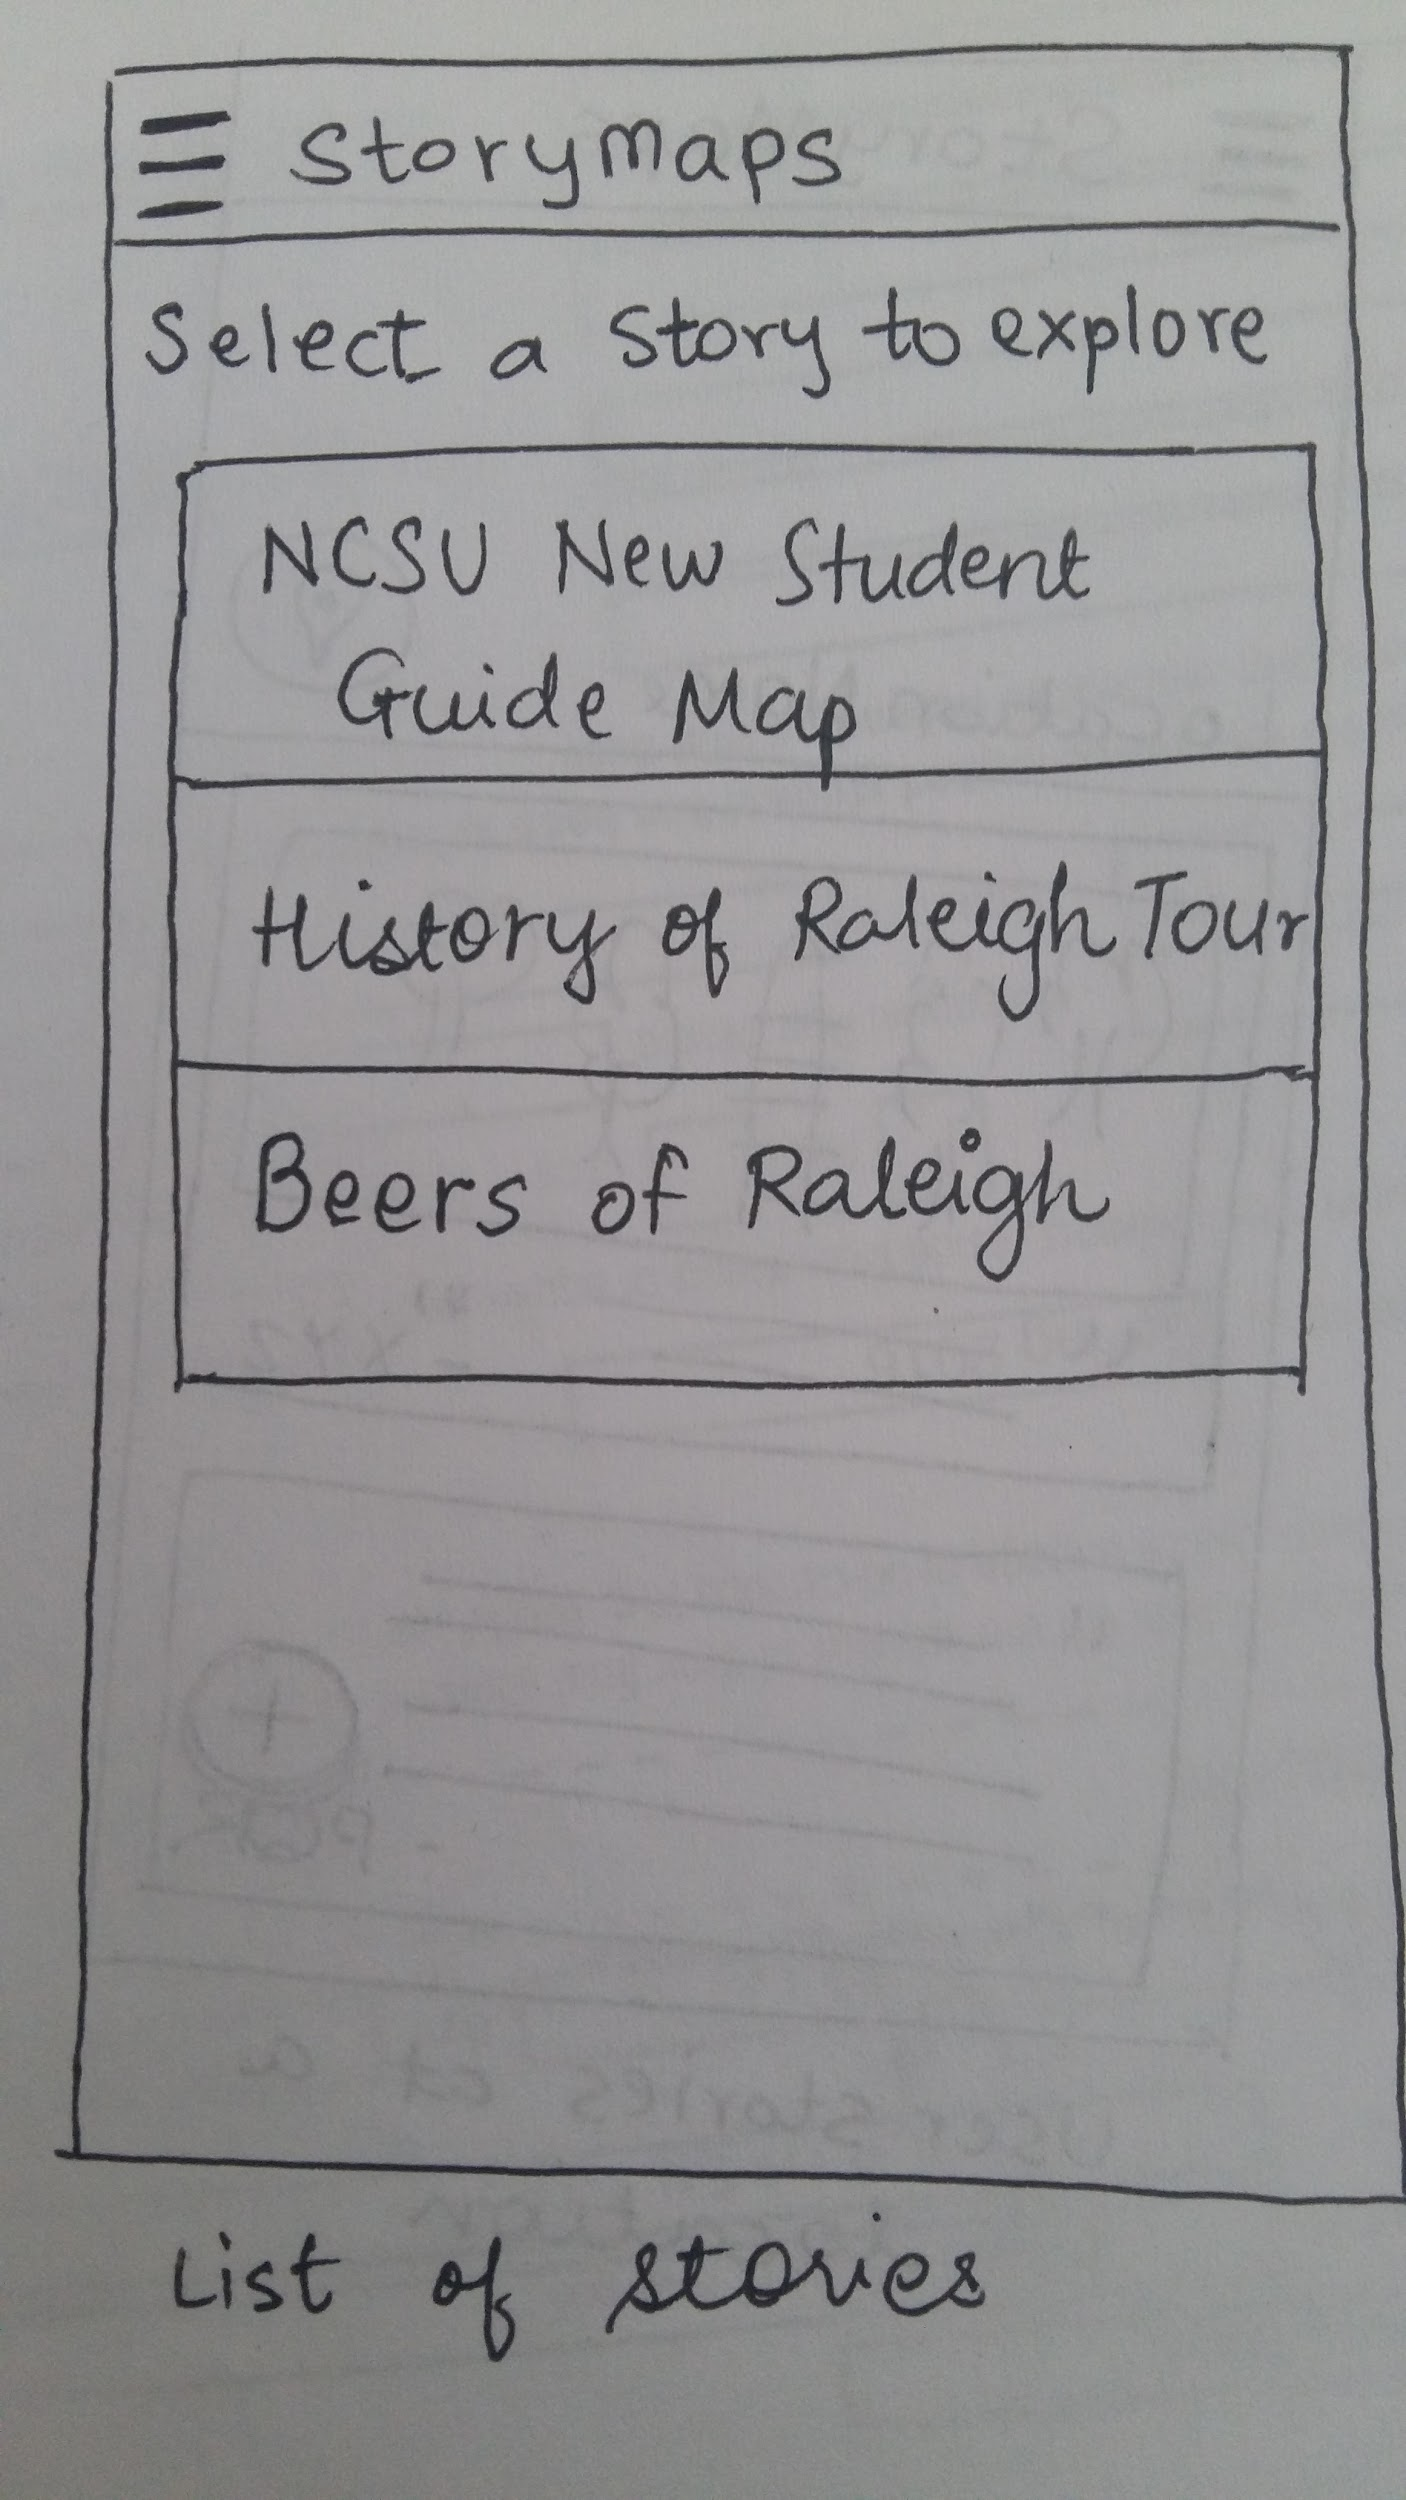 storymaps
Select a Story to explore
NCSU New Student
Guide Map
History of Raleigh Tour
Beers of Raleigh
List of stories